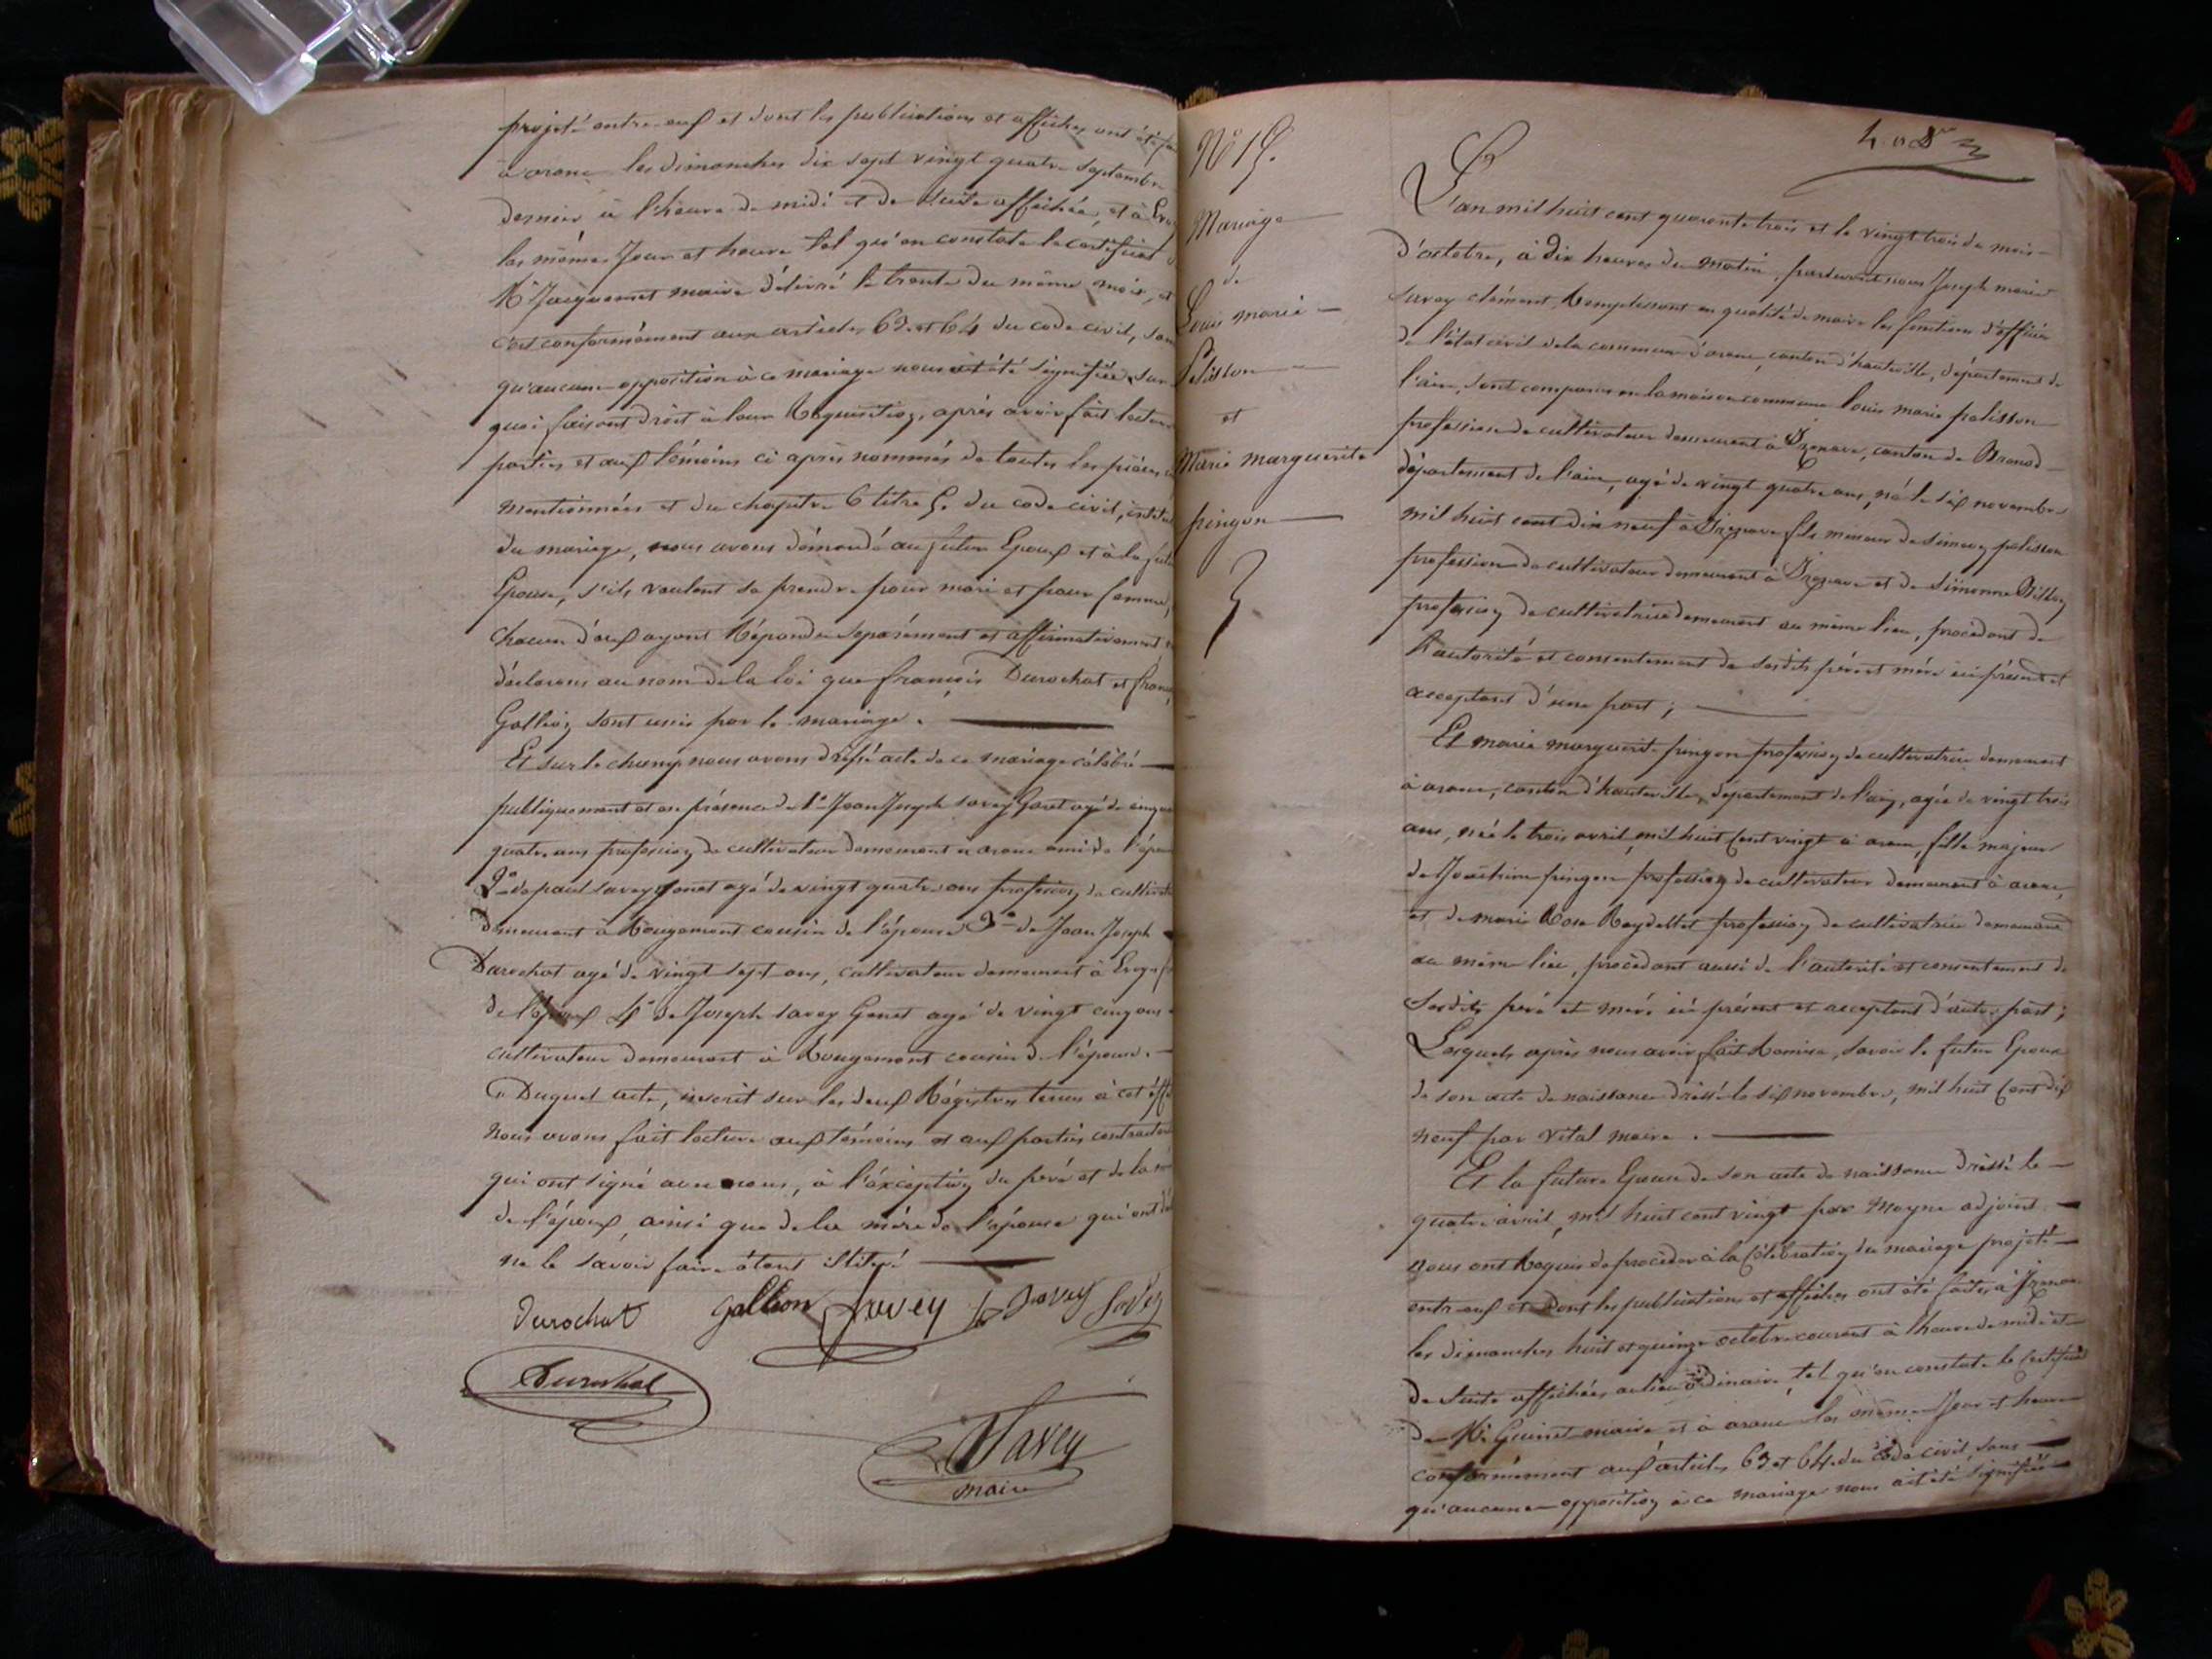 projeté entre eux et dont les publications et affiches ont été
à arane les dimanches dix sept vingt quatre septembre
dernier à l'heure de midi et de suite affichée, et à
les mêmes Jour et heure tel qu'en constate le certificat
Mr Jacquemet maire délivré le trente du même mois, et
c'est conformément aux articles 63 et 64 du code civil, sans
qu'aucune opposition à ce mariage nous ait été signifiée, sur
quoi faisant droit à leur Réquisition, après avoir fait lecture
parties et aux témoins ci après nommés de toutes les pièces
mentionnées et du chapitre 6 titre 5. du code civil, intitulé
du mariage, nous avons démandé au futur Epoux et à la future
Epouse, s'ils veulent se prendre pour mari et pour femme,
chacun d'eux ayant Répondu séparément et affirmativement
déclarons au nom de la loi que françois Durochat et
Gallion sont unis par le mariage.
Et sur le champ nous avons dressé acte de ce mariage célébré
publiquement et en présence de 1° Jean Joseph savey Goret agé de
quatre ans profession de cultivateur demeurant à arane ami de l'épouse
2° de paul savey Gonet agé de vingt quatre ans profession de cultivateur
demeurant à Rougemont cousin de l'épouse 3° de Jean Joseph
Durochat agé de vingt sept ans, cultivateur demeurant à
de l'époux 4° de Joseph savey Gonet agé de vingt cinq ans
cultivateur demeurant à Rougemont cousin de l'épouse.
Duquel acte, inscrit sur les deux Régistres tenus à cet effet
nous avons fait lecture aux témoins et aux parties contractantes
qui ont signé avec nous, à l'éxcéption du père et de la mère
de l'époux, ainsi que de la mère de l'épouse qui ont
ne le savoir faire étant illitéré
Durochat Gallion Savey Savey Savey
Durochat
Savey
maire
N° 15.
Mariage
de
Louis marie
Pélisson
et
Marie marguerite
pingon
408
L'an mil huit cent quarante trois et le vingt trois du mois
d'octobre, à Dix heures du matin, pardevant nous Joseph marie
savey clément, Remplissant en qualité de maire les fonctions d'officier
de l'état civil de la commune d'arane, canton d'hauteville, département de
l'ain, sont comparus en la maison commune louis marie pelisson
profession de cultivateur demeurant à Izenave, canton de Brenod
département de l'ain, agé de vingt quatre ans, né le six novembre
mil huit cent dix neuf à Izenave fils mineur de simon pélisson
profession de cultivateur demeurant à Izenave et de simonne
profession de cultivatrice demeurant au même lieu, procédant de
l'autorité et consentement de sesdits père et mère ici présent et
acceptant d'une part;
Et marie marguerite pingon profession de cultivatrice demeurant
à arane, canton d'hauteville, département de l'ain, agée de vingt trois
ans, née le trois avril, mil huit Cent vingt à arane, fille majeure
de Joachim pingon profession de cultivateur demeurant à arane,
et de marie Rose Reydellet profession de cultivatrice demeurant
au même lieu, procédant aussi de l'autorité et consentement de
sesdits père et mère ici présent et acceptant d'autre part;
Lesquels après nous avoir fait Remise, savoir le futur Epoux
de son acte de naissance dréssé le six novembre, mil huit Cent dix
neuf par vital maire.
Et la future Epouse de son acte de naissance dréssé le
quatre avril, mil huit cent vingt par Moyne adjoint
nous ont Requis de procéder à la Célébration du mariage projeté
entr'eux et dont les publications et affiches ont été faites à Izenave
les dimanches huit et quinze octobre courant à l'heure de midi et
de suite affichées au lieu ordinaire, tel qu'en constate le Certificat
de Mr Guinet maire et à arane les même Jour et heure
conformément aux articles 63 et 64 du code civil, sans
qu'aucune opposition à ce mariage nous ait été signifiée